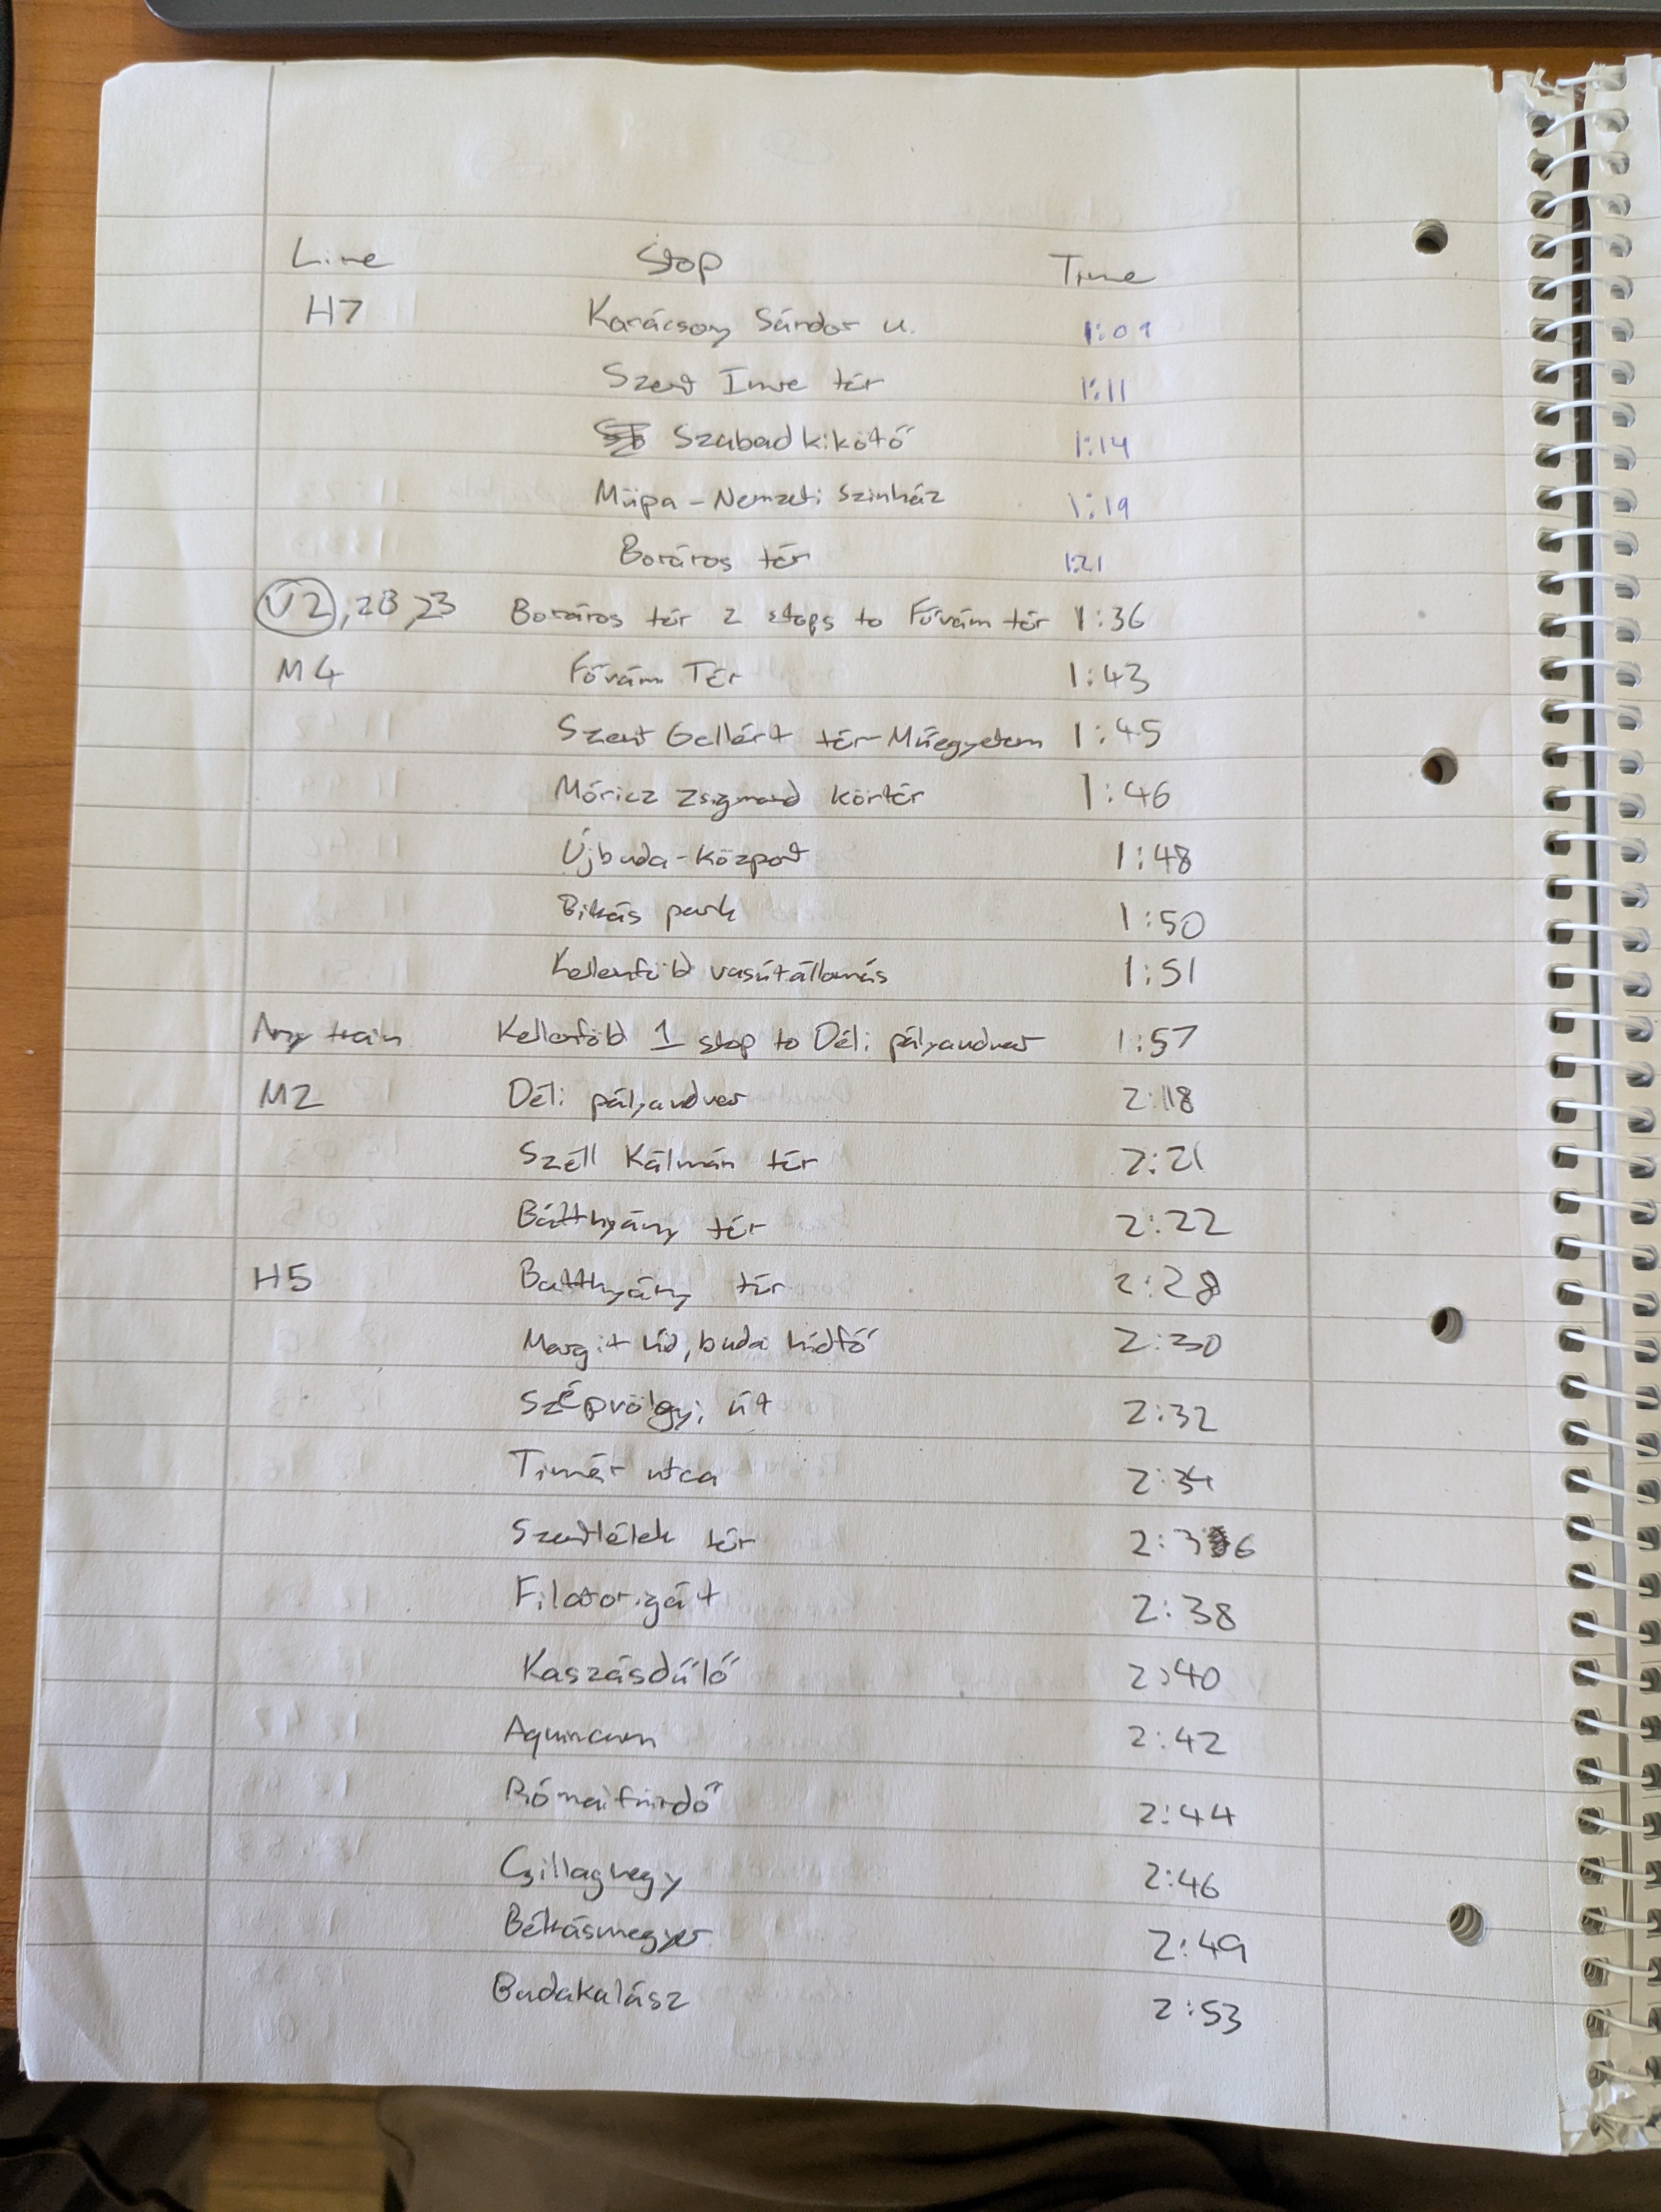 Line Stop Time
H7 Karácsony Sándor u. 1:09
Szent Imre tér 1:11
Szabadkikötő 1:14
Müpa - Nemzeti Szinház 1:19
Boráros tér 1:21
V2, 2B, 23 Boráros tér 2 stops to Fővám tér 1:36
M4 Fővám Tér 1:43
Szent Gellért tér - Műegyetem 1:45
Móricz Zsigmond körtér 1:46
Újbuda-központ 1:48
Bikás park 1:50
Kelenföld vasútállomás 1:51
Any train Kelenföld 1 stop to Déli pályaudvar 1:57
M2 Déli pályaudvar 2:18
Széll Kálmán tér 2:21
Bátthyány tér 2:22
H5 Batthyány tér 2:28
Margit híd, buda hídfő 2:30
Szépvölgyi út 2:32
Timár utca 2:34
Szentlélek tér 2:36
Filatorigát 2:38
Kaszásdűlő 2:40
Aquincum 2:42
Rómaifürdő 2:44
Csillaghegy 2:46
Békásmegyer 2:49
Budakalász 2:53